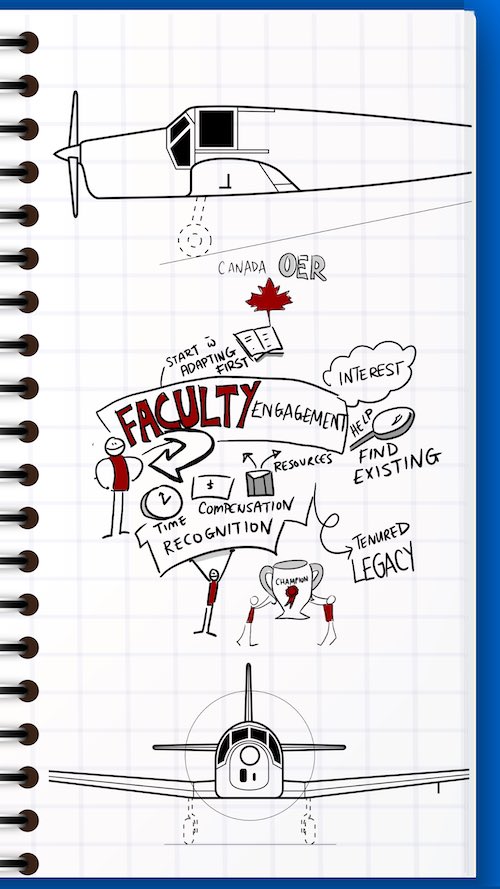 CANADA OER
START W
ADAPTING
FIRST
INTEREST
FACULTY ENGAGEMENT
HELP
FIND
EXISTING
RESOURCES
$
TIME
COMPENSATION
RECOGNITION
TENURED
LEGACY
CHAMPION